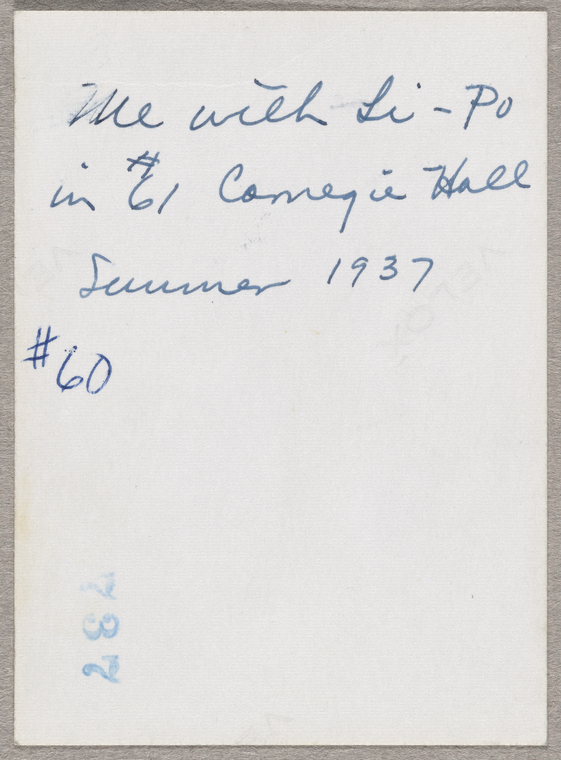 Me with Li-Po
in #61 Carnegie Hall
Summer 1937
#60
737